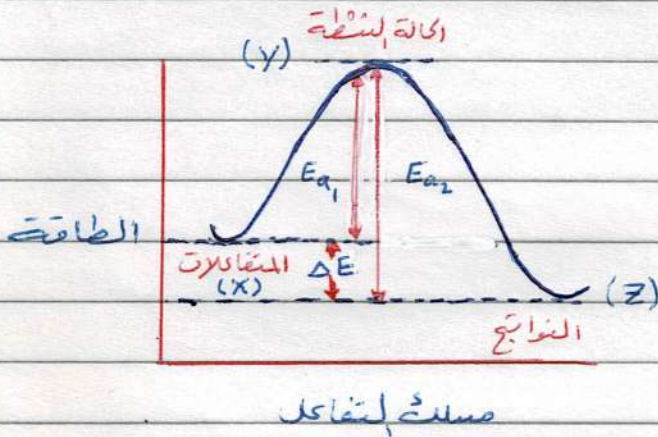 الحالة المنشطة
(Y)
Ea1 Ea2
الطاقة
المتفاعلات
(X)
ΔE
(Z)
النواتج
مسلك التفاعل